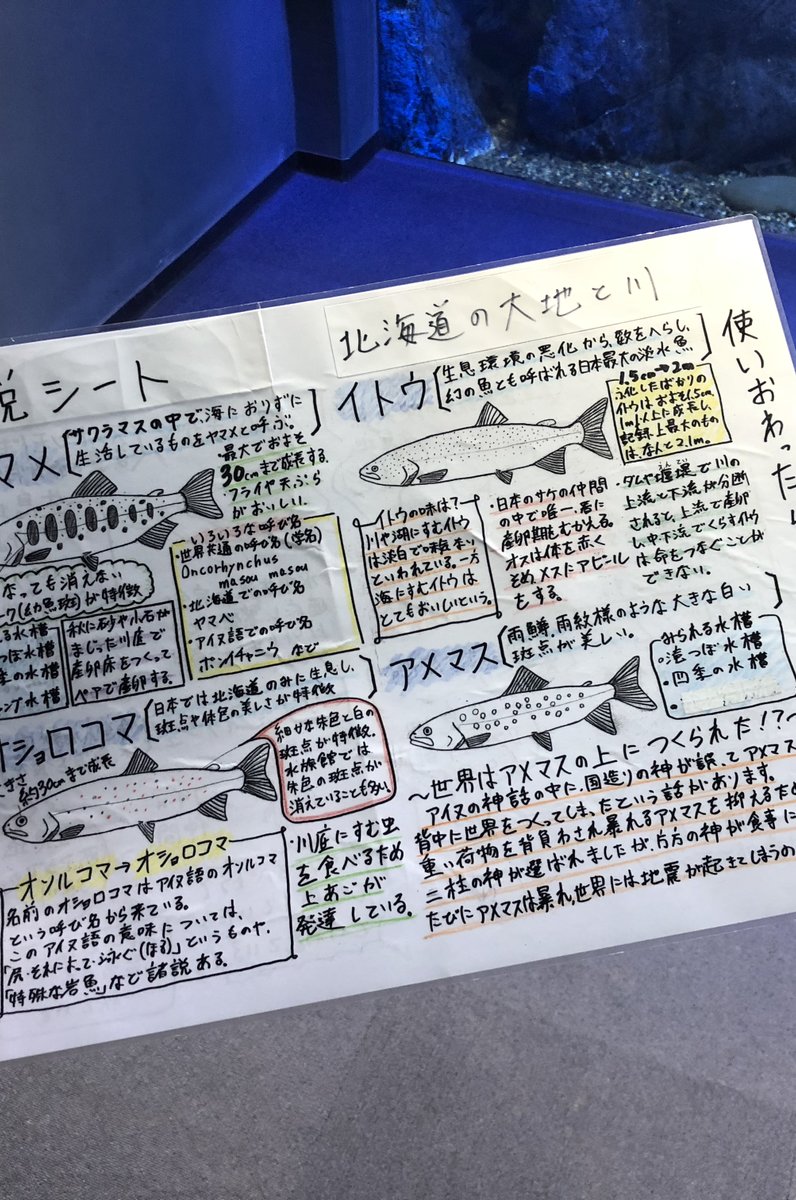 北海道の大地と川
説シート
使いおわった
マメ
サクラマスの中で、海におりずに
生活しているものをヤマメと呼ぶ。
・最大でおよそ
30cmまで成長する。
・フライや天ぷら
がおいしい。
なっても消えない
ーク(幼魚斑)が特徴
る水槽
っぽ水槽
季の水槽
ング水槽
秋に砂や小石が
まじった川底で
産卵床をつくって
ペアで産卵する。
いろいろな呼び名
・世界共通の呼び名(学名)
Oncorhynchus
masou masou
・北海道での呼び名
ヤマベ
・アイヌ語での呼び名
ポンイチャニウ など
オショロコマ
日本では北海道のみに生息し、
斑点や体色の美しさが特徴
きさ
約30cmまで成長
細かな朱色と白の
斑点が特徴。
水族館では
朱色の斑点が
消えていることも多い。
オソルコマ→オショロコマ
名前のオショロコマはアイヌ語のオソルコマ
という呼び名から来ている。
このアイヌ語の意味については、
「尻・それによって・泳ぐ(ほる)」というものや、
「特殊な岩魚」など諸説ある。
・川底にすむ虫
を食べるため
上あごが
発達している。
イトウ
生息環境の悪化から、数をへらし、
幻の魚とも呼ばれる日本最大の淡水魚
1.5cm→2m
ふ化したばかりの
イトウは、およそ1.5cm。
1m以上に成長し、
記録上最大のもの
は、なんと2.1m。
イトウの味は?
川や湖にすむイトウ
は淡白で味気ない
といわれている。一方
海にすむイトウは
とてもおいしいという。
・日本のサケの仲間
の中で唯一、春に
産卵期をむかえる。
オスは体を赤く
そめ、メスにアピール
をする。
・ダムや堰堤で川の
上流と下流が分断
されると、上流で産卵
し中下流でくらすイトウ
は命をつなぐことが
できない。
アメマス
雨鱒、雨紋様のような大きな白い
斑点が美しい。
みられる水槽
・滝つぼ水槽
・四季の水槽
～世界はアメマスの上につくられた!?～
アイヌの神話の中に、国造りの神が誤ってアメマス
背中に世界をつくってしまったという話があります。
重い荷物を背負わされ暴れるアメマスを抑えるため
二柱の神が選ばれましたが、片方の神が食事に
たびにアメマスは暴れ、世界には地震が起きてしまうの